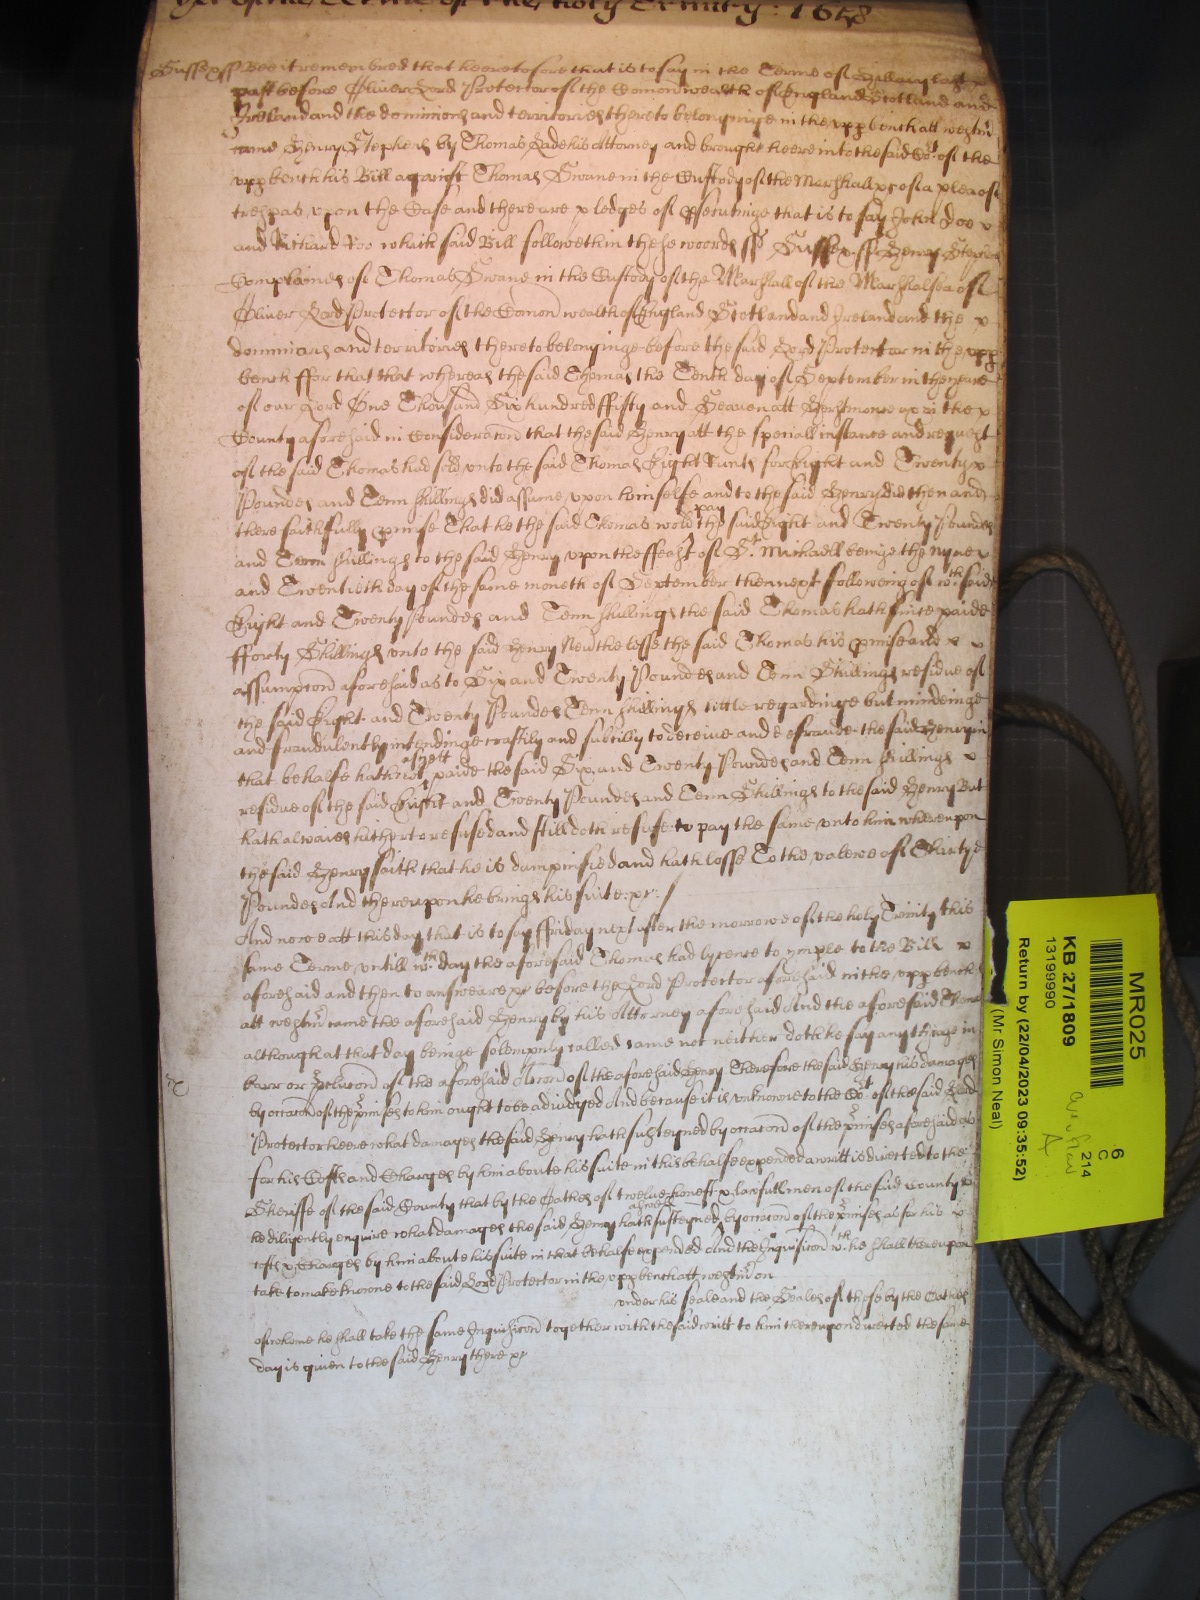 yet of the Terme of the holy Trinity: 1658
Sussex ss Bee it remembred that heeretofore that is to say in the Terme of S Hillary last
past before Oliver Lord Protector of the Comonwealth of England Scotland and
Ireland and the dominions and territories thereto belonginge in the upp bench att westm
came Henry Stephens by Thomas his Attorney and brought heere into the said Cot of the
upp bench his Bill against Thomas Swane in the Custody of the Marshall &c of a plea of
trespas upon the Case and there are pledges of psecutinge that is to say John Doe
and Richard Roo which said Bill followeth in these woords ss Sussex ss Henry Stephens
Complaines of Thomas Swane in the Custody of the Marshall of the Marshalsea of
Oliver Lord Protector of the Comon wealth of England Scotland and Ireland and the
dominions and territories thereto belonginge before the said Lord Protector in the upp
bench ffor that that whereas the said Thomas the Tenth day of September in the yeare
of our Lord One Thousand Six hundred ffifty and Seaven att in the
County aforesaid in Consideracon that the said Henry att the speciall instance and request
of the said Thomas had sold unto the said Thomas Eight Runts for Eight and Twenty
Poundes and Tenn shillings did assume upon himselfe and to the said Henry did then and
there faithfully pmise That he the said Thomas wold pay the said Eight and Twenty Poundes
and Tenn shillings to the said Henry upon the ffeast of St Michaell beinge the Nyne
and Twentieth day of the same moneth of September then next following of wch said
Eight and Twenty Poundes and Tenn shillings the said Thomas hath since paide
fforty Shillings unto the said Henry Nevthelesse the said Thomas his pmise and
assumpcon aforesaid as to Six and Twenty Poundes and Tenn Shillings residue of
the said Eight and Twenty Poundes Tenn shillings little regardinge but mindeinge
and fraudulently intendinge craftily and subtilly to deceive and defraude the said Henry in
that behalfe hath not as yett paide the said Six and Twenty Poundes and Tenn shillings
residue of the said Eight and Twenty Poundes and Tenn Shillings to the said Henry But
hath alwaies hitherto refused and still doth refuse to pay the same unto him whereupon
the said Henry saith that he is dampnified and hath losse To the valewe of Thirtye
Poundes And thereupon he brings his suite &c
And nowe att this day that is to say ffriday next after the morrowe of the holy Trinity this
same Terme untill wch day the aforesaid Thomas had lycence to imple to the Bill
aforesaid and then to answeare &c before the Lord Protector aforesaid in the upp bench
att westm came the aforesaid Henry by his Attorney aforesaid And the aforesaid Thomas
although at that day beinge solempnly called came not neither doth he say any thinge in
barr or pclucon of the aforesaid Accon of the aforesaid Henry Therefore the said Henry his damages
by occacon of the pmises to him ought to be adiudged And because it is unknowne to the Cot of the said Lord
Protector heere what damages the said Henry hath susteyned by occacon of the pmises aforesaid as
for his Costs and Charges by him about his suite in this behalfe expended a writt is directed to the
Sheriffe of the said County that by the Oathes of twelve honest & lawfull men of the said County
he diligently enquire what damages the said Henry hath susteyned aswell by occacon of the pmises as for his
costs & Charges by him about his suite in that behalfe expended And the Inquisicon wch he shall thereupon
take to make knowne to the said Lord Protector in the upp bench att westm on
under his seale and the Seales of those by the Oathes
of whome he shall take the same Inquisicon together with the said writt to him thereupon directed the same
day is given to the said Henry there &c
MR025
KB 27/1809
13199990
6
C
214
A
Return by (22/04/2023 09:35:52)
(Mr Simon Neal)